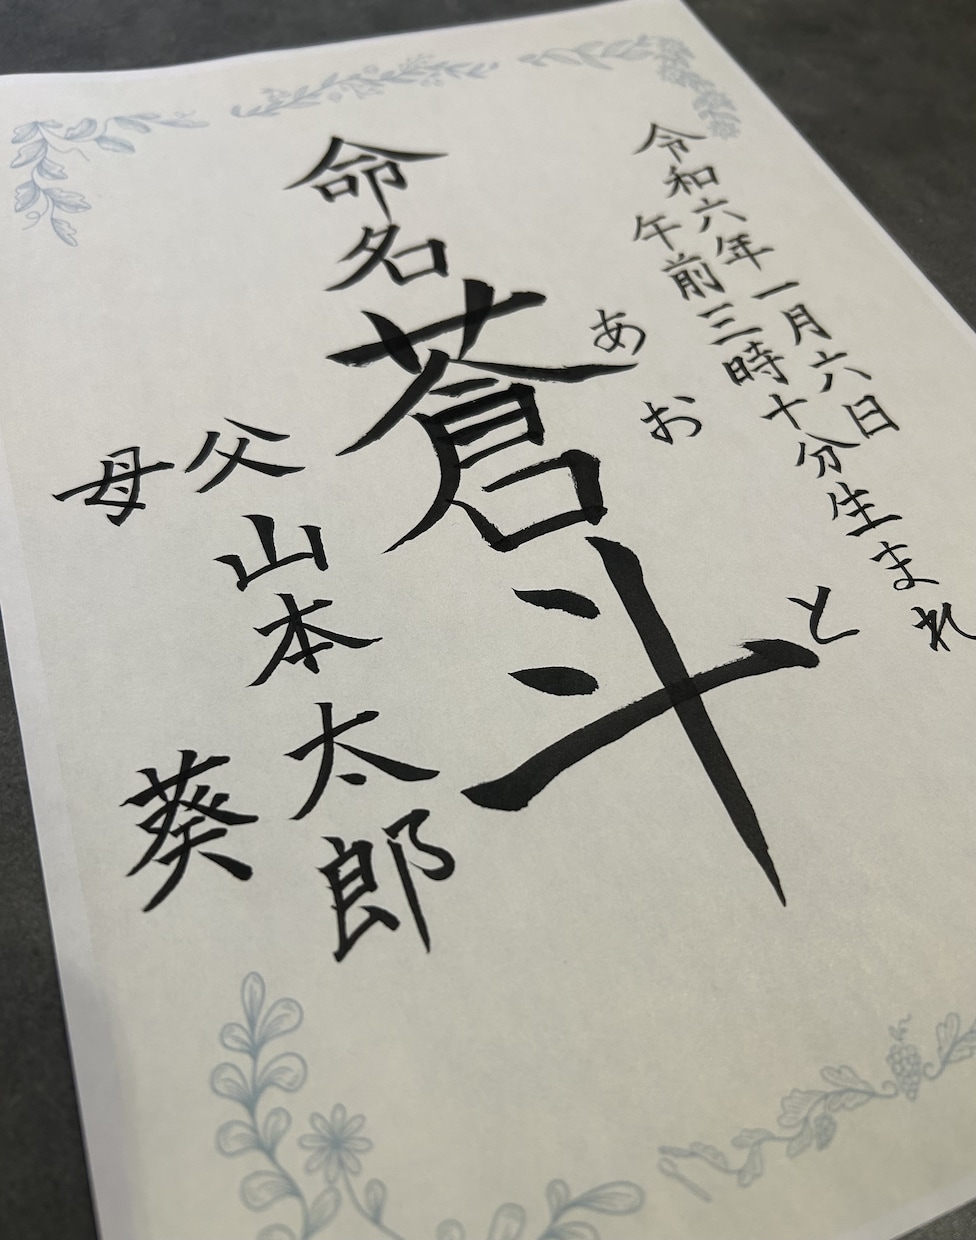 令和六年一月六日
午前三時十分生まれ
あおと
命名 蒼斗
父 山本太郎
母 葵